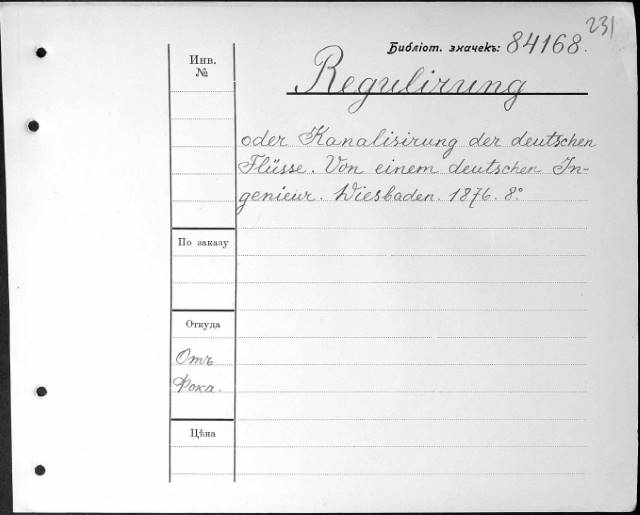 231
Библіот. значекъ: 84168.
Инв.
№
Regulirung
oder Kanalisirung der deutschen
Flüsse. Von einem deutschen In-
genieur. Wiesbaden. 1876. 8°
По заказу
Откуда
Отъ
Фока.
Цѣна